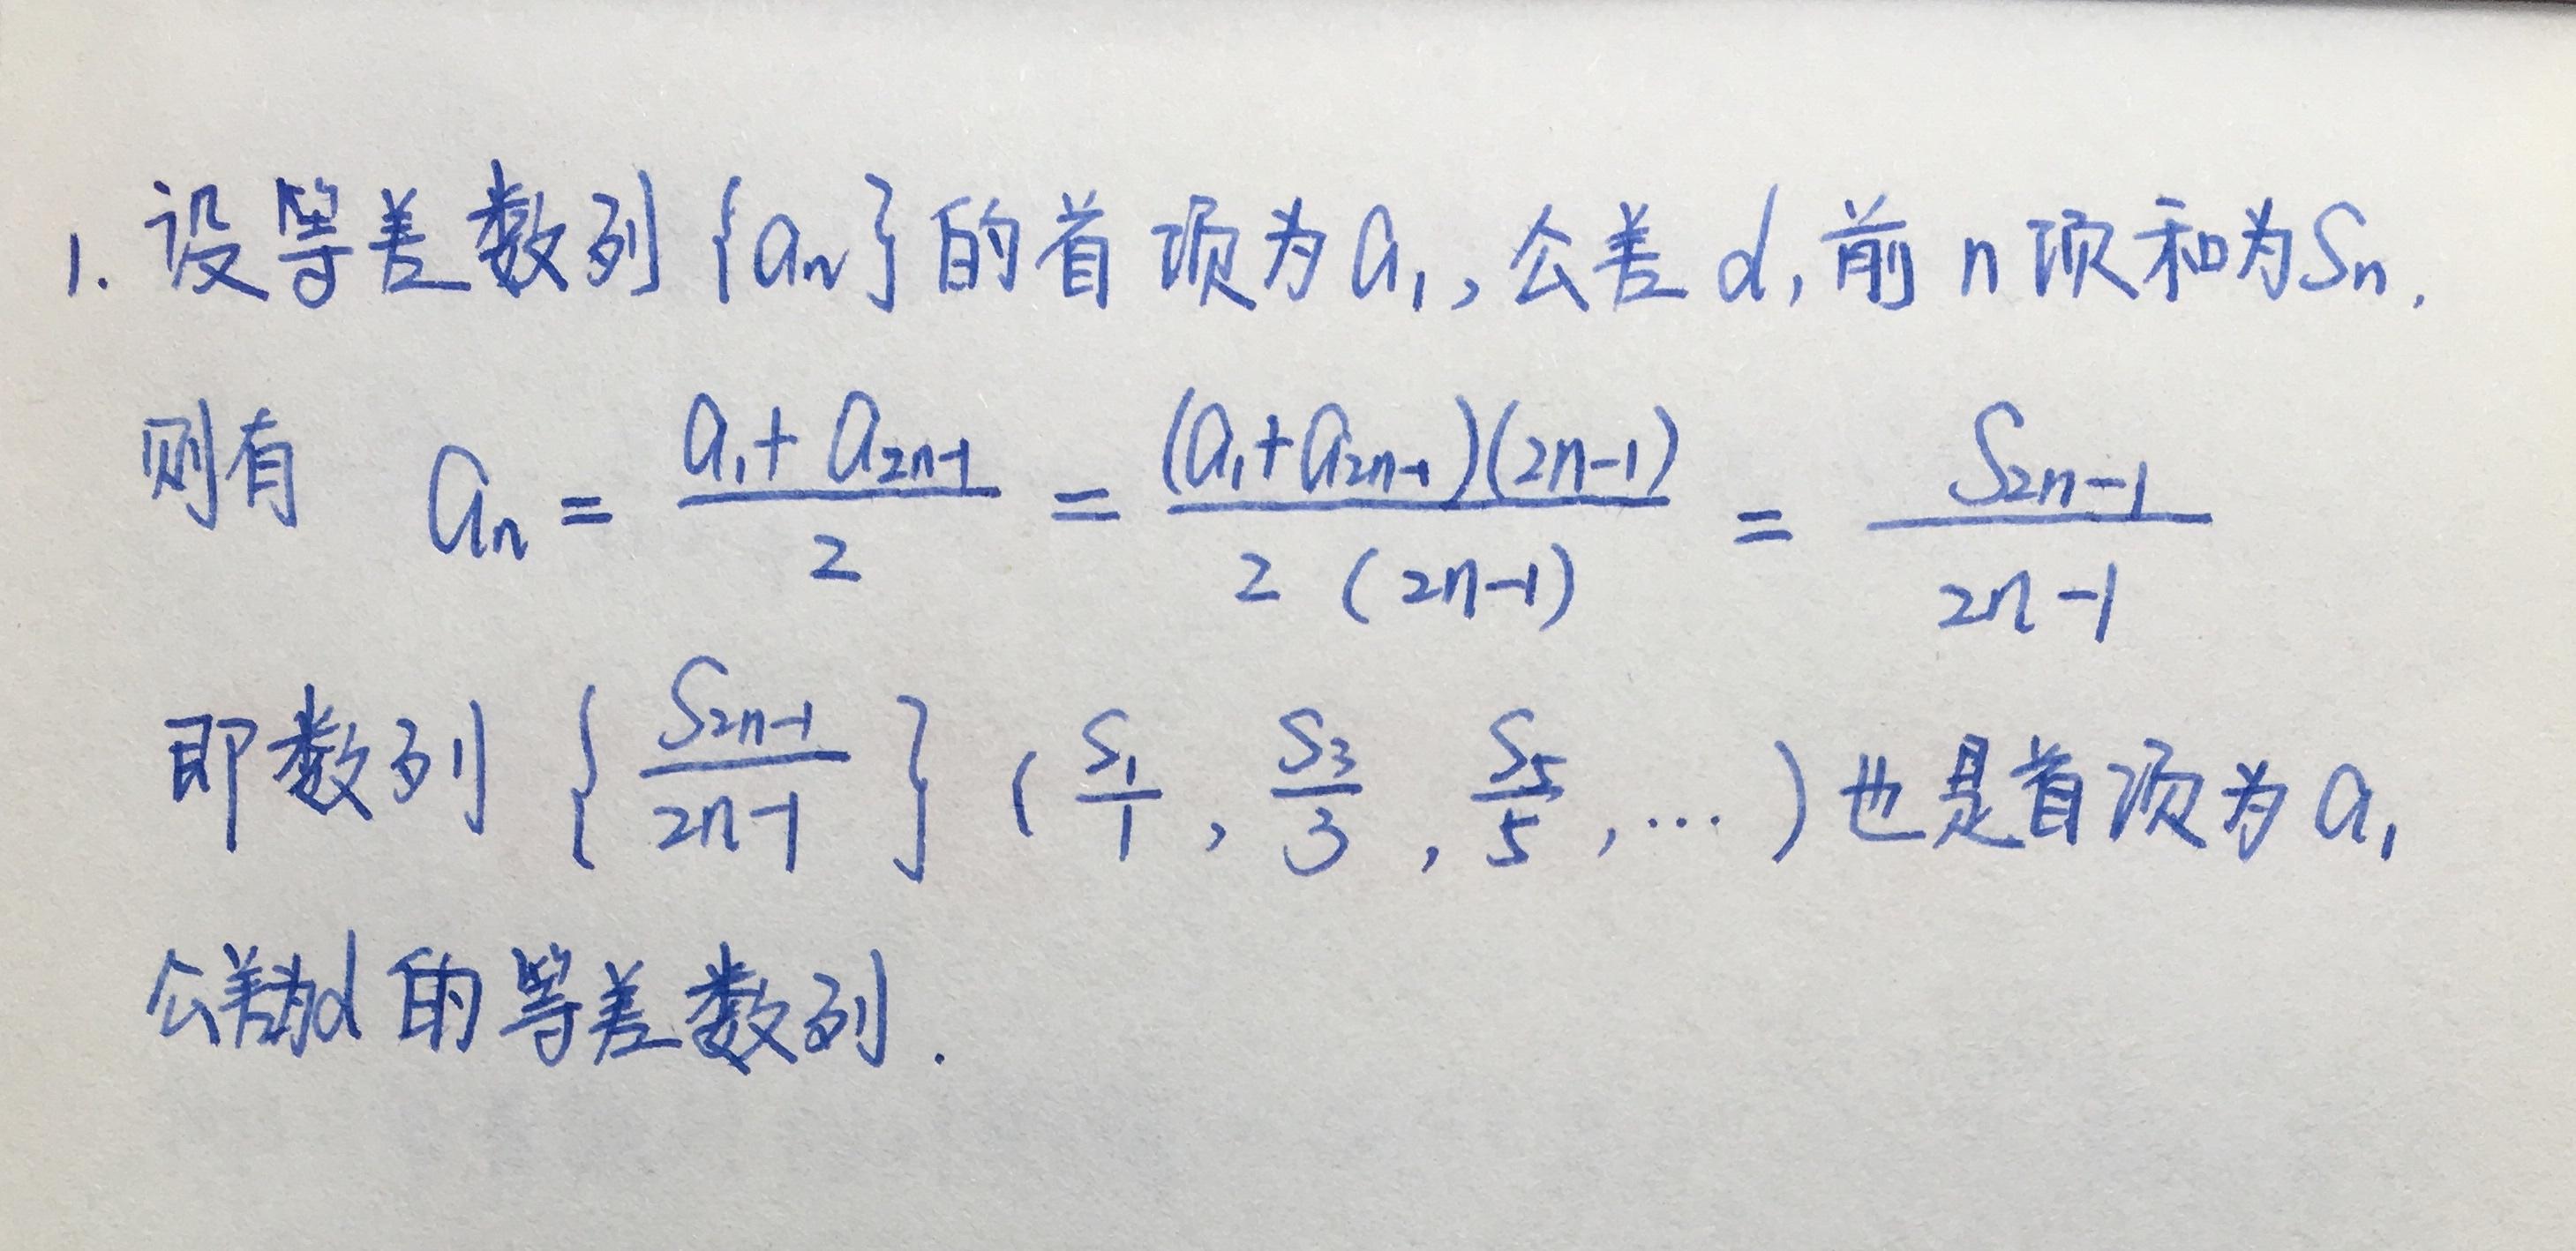 1. 设等差数列{aₙ}的首项为a₁,公差d,前n项和为Sₙ.
则有 aₙ = (a₁+a₂ₙ₋₁)/2 = (a₁+a₂ₙ₋₁)(2n-1)/2(2n-1) = S₂ₙ₋₁/(2n-1)
即数列{S₂ₙ₋₁/(2n-1)}(S₁/1, S₃/3, S₅/5, …)也是首项为a₁
公差为d的等差数列.